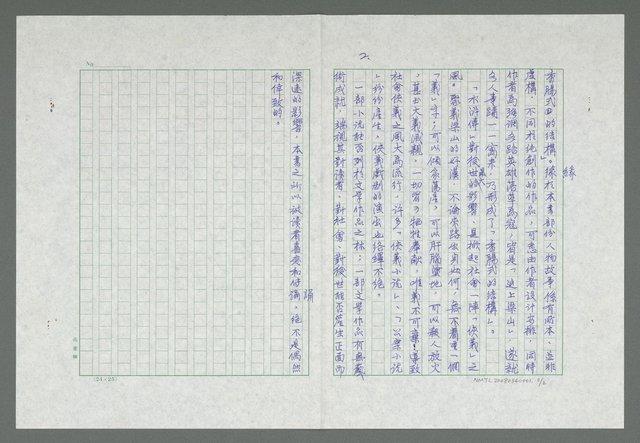 2.
緣
香腸式的結構」。緣於本書部份人物故事係有所本、並非
虛構,不同於純創作的作品,可悉由作者設計安排,同時
作者為強調各路英雄落草為寇,皆是「逼上梁山」,遂就
各人事蹟一一寫來,乃形成了「香腸式的結構」。
「水滸傳」對後世最大的影響,是掀起社會一陣「俠義」之
風。聚義梁山的好漢,不論來路出身如何,無不看重一個
「義」字;可以傾家蕩產,可以肝腦塗地,可以殺人放火
,甚至大義滅親,一切皆可犧牲奉獻,唯義不可棄!導致
社會俠義之風大為流行,許多「俠義小說」、「公案小說
」紛紛產生,俠義戲劇的演出也絡繹不絕。
一部小說能否列於文學作品之林;一部文學作品有無藝
術成就,端視其對讀者、對社會、對後世能否產生正面而
深遠的影響,本書之所以被讀者喜愛和傳誦,絕不是偶然
誦
和倖致的。
No
(24×25)
NMTL20080360401. 2/2